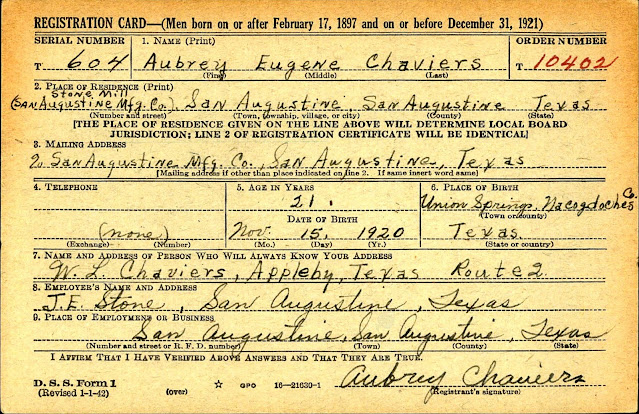 REGISTRATION CARD—(Men born on or after February 17, 1897 and on or before December 31, 1921)
SERIAL NUMBER 1. NAME (Print) ORDER NUMBER
T 604 Aubrey Eugene Chaviers T 10402
(First) (Middle) (Last)
2. PLACE OF RESIDENCE (Print)
Stone Mill
(San Augustine Mfg. Co.) San Augustine San Augustine Texas
(Number and street) (Town, township, village, or city) (County) (State)
[THE PLACE OF RESIDENCE GIVEN ON THE LINE ABOVE WILL DETERMINE LOCAL BOARD
JURISDICTION; LINE 2 OF REGISTRATION CERTIFICATE WILL BE IDENTICAL]
3. MAILING ADDRESS
San Augustine Mfg. Co., San Augustine, Texas
[Mailing address if other than place indicated on line 2. If same insert word same]
4. TELEPHONE 5. AGE IN YEARS 6. PLACE OF BIRTH
21. Union Springs, Nacogdoches Co.
DATE OF BIRTH (Town or county)
(none) Nov. 15, 1920 Texas.
(Exchange) (Number) (Mo.) (Day.) (Yr.) (State or country)
7. NAME AND ADDRESS OF PERSON WHO WILL ALWAYS KNOW YOUR ADDRESS
W. L. Chaviers, Appleby, Texas Route 2
8. EMPLOYER'S NAME AND ADDRESS
J.E. Stone, San Augustine, Texas
9. PLACE OF EMPLOYMENT OR BUSINESS
San Augustine, San Augustine, Texas
(Number and street or R. F. D. number) (Town) (County) (State)
I AFFIRM THAT I HAVE VERIFIED ABOVE ANSWERS AND THAT THEY ARE TRUE.
Aubrey Chaviers
D. S. S. Form 1
(Revised 1-1-42) (over) ☆ GPO 16—21630-1 (Registrant's signature)